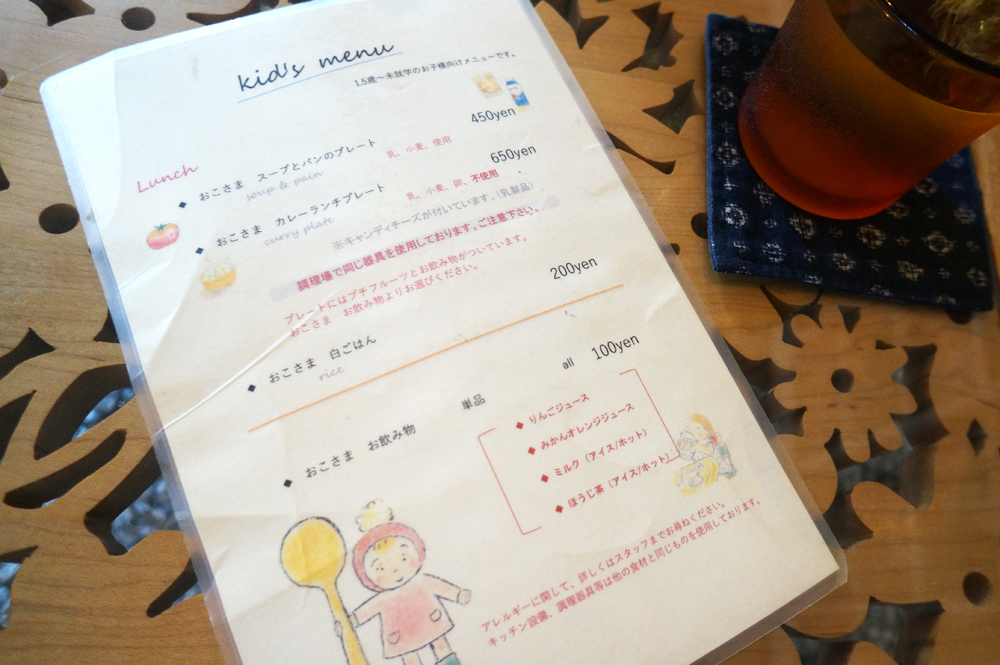 kid's menu
1.5歳～未就学のお子様向けメニューです。
Lunch
◆ おこさま スープとパンのプレート 450yen
soup & pain
乳、小麦、使用
◆ おこさま カレーランチプレート 650yen
curry plate
乳、小麦、卵、不使用
※キャンディチーズが付いています。(乳製品)
調理場で同じ器具を使用しております。ご注意下さい。
プレートにはプチフルーツとお飲み物がついています。
おこさま お飲み物よりお選びください。
◆ おこさま 白ごはん 200yen
rice
◆ おこさま お飲み物 単品 all 100yen
◆ りんごジュース
◆ みかんオレンジジュース
◆ ミルク (アイス/ホット)
◆ ほうじ茶 (アイス/ホット)
アレルギーに関して、詳しくはスタッフまでお尋ねください。
キッチン設備、調理器具等は他の食材と同じものを使用しております。